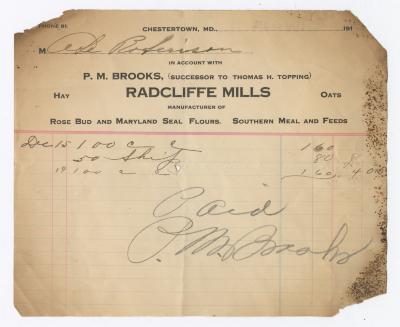 PHONE 81.
CHESTERTOWN, MD., 191
M Robinson
IN ACCOUNT WITH
P. M. BROOKS, (SUCCESSOR TO THOMAS H. TOPPING)
HAY RADCLIFFE MILLS OATS
MANUFACTURER OF
ROSE BUD AND MARYLAND SEAL FLOURS. SOUTHERN MEAL AND FEEDS
Dec 15 100 c c 160
50 Ship 80
19 100 c c 1.60 4.00
Paid
P. M. Brooks